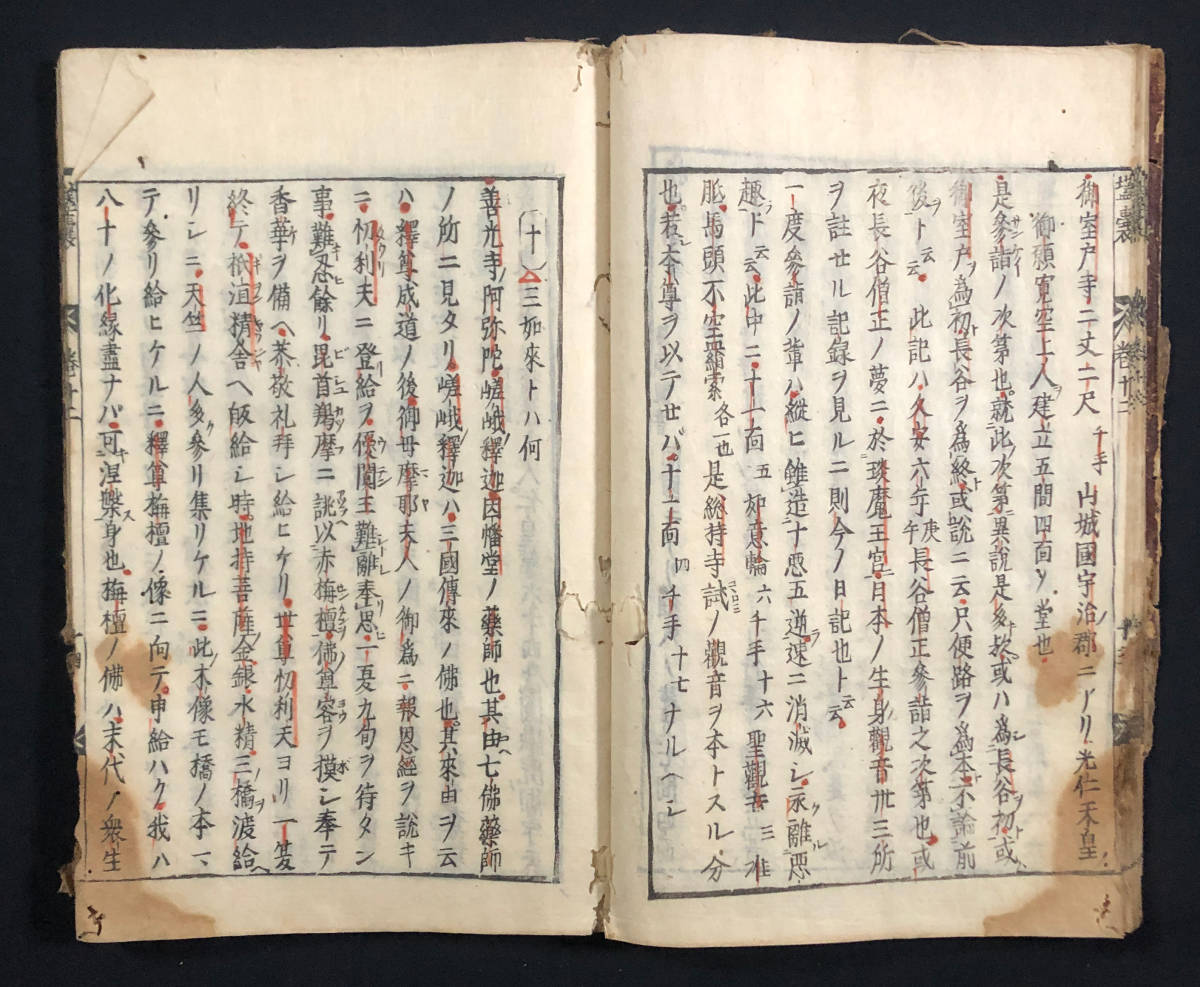 御室戸寺二丈二尺 千手 山城國宇治郡ニアリ光仁天皇
御願寛空上人建立五間四面ノ堂也
是參詣ノ次第也就此次第異說是多或ハ爲長谷初或
御室戸爲初長谷ヲ爲終或說ニ云只便路ヲ爲本不論前
後ト云云 此記ハ久安六年庚午長谷僧正參詣之次第也或
夜長谷僧正ノ夢ニ於琰魔王宮日本ノ生身觀音卅三所
ヲ註セル記録ヲ見ルニ則今ノ日記也ト云云
一度參詣ノ輩ハ縱ヒ雖造十惡五逆速ニ消滅シ永離惡
趣ト云云此中ニ十一面五如意輪六千手十六聖觀音三准
胝馬頭不空羂索各一也是総持寺試ノ觀音ヲ本トスル分
也若本尊ヲ以テセバ十一面四千手十七ナルヘシ
十 三如來トハ何
善光寺阿弥陀嵯峨釋迦因幡堂ノ藥師也其由七佛藥師
ノ所ニ見タリ嵯峨釋迦ハ三國傳來ノ佛也其來由ヲ云
ハ釋尊成道ノ後御母摩耶夫人ノ御爲ニ報恩經ヲ說キ
ニ忉利天ニ登給ヲ優闐王難離奉思一夏九旬ヲ待タン
事難忍餘リ毘首羯摩ニ誂以赤栴檀佛尊容ヲ摸シ奉テ
香華ヲ備ヘ恭敬礼拜シ給ヒケリ世尊忉利天ヨリ一夏
終テ祇洹精舎ヘ皈給シ時地持菩薩金銀水精三橋ヲ渡給ヘ
リシニ天竺ノ人多參リ集リケルニ此木像モ橋ノ本ヘ
テ參リ給ヒケルニ釋尊栴檀ノ像ニ向テ申給ハク我ハ
八十ノ化縁盡ナバ可涅槃身也栴檀ノ佛ハ末代ノ衆生